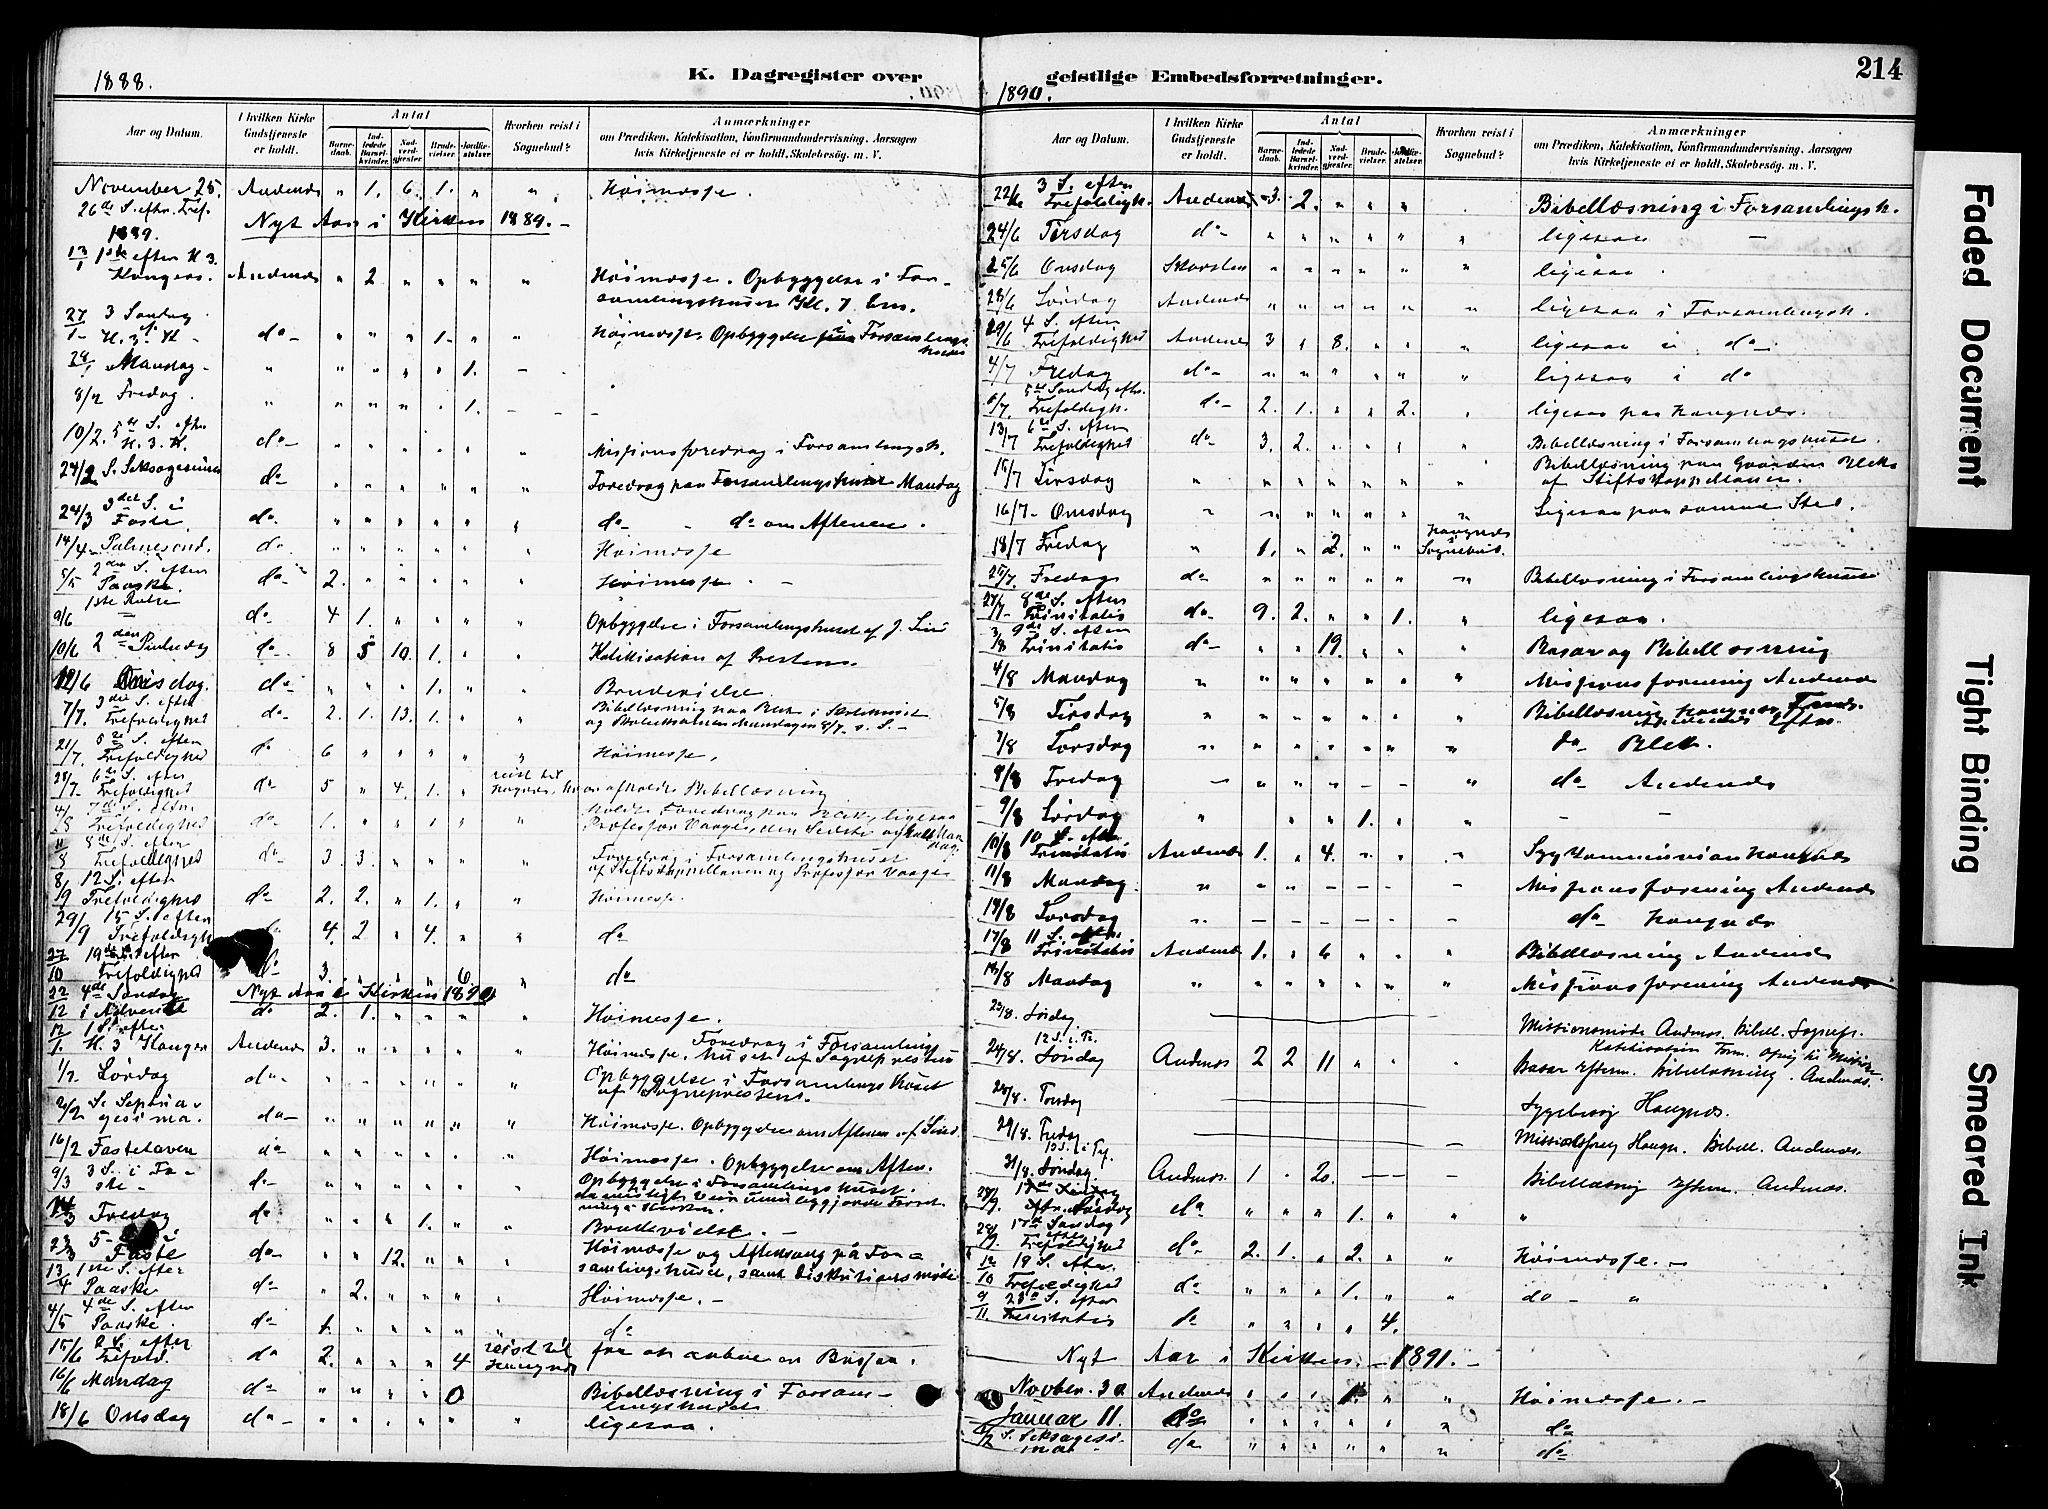 1888.
K. Dagregister over
Aar og Datum.
I hvilken Kirke Gudstjeneste er holdt.
Antal
Barnedaab.
Indledede Barselkvinder.
Nadverdgjester.
Brudevielser.
Jordfæstelser.
Hvorhen reist i Sognebud?
Anmærkninger
om Prædiken, Katekisation, Konfirmandundervisning, Aarsagen
hvis Kirketjeneste ei er holdt, Skolebesøg. m. V.
November 25. Andenæs " 1. 6. 1. " " Høimesse.
26de S. eftr. Tref.
1889. Nyt Aar i Kirken 1889. -
13/1 1ste efter H. 3.
Kongers. Andenæs " 2 " " " " Høimesse. Opbyggelse i For-
samlingshuset Kl. 7 Em.
27/1 3 Søndag
e. H. 3. K. do " " " 1. " " Høimesse, Opbyggelse Forsamlings
huset
28/1 Mandag - " " " " " 1. -
8/2 Fredag. " " " " " 1. - - -
10/2. 5te S. eftr.
H. 3. K. do " " " " " " Missionsforedrag i Forsamlingsh.
24/2 S. Seksagesima do " " " " " " Foredrag paa Forsamlingshuset Mandag
24/3 3die S. i
Faste. do. " " " " " " do " do om Aftenen.
14/4 Palmesønd. do " " " " " " Høimesse
5/5 2den S. efter
Paaske. do 2. " " " " " Høimesse. -
9/6 1ste Pintse do 4 1. " " " " Opbyggelse i Forsamlingshuset af J. Lind
10/6 2den Pintsedag do 8 5 10. 1. " " Katekisation af Presten.
12/6 Onsdag. do " " " 1. " " Brudevielse.
7/7. 3die S. efter
Trefoldighed do 2. 1. 13. 1. " " Bibellæsning paa Blek i Skolehuset
og Mandagen 8/7. s. S. -
21/7 5te S. efter
Trefoldighed do 6 " " " " " Høimesse,
28/7. 6te S. efter
Trefoldighed do 5 " 4. 1. " reist til Haugnes, hvor afholdt Bibellæsning
4/8 7de S. efter
Trefoldighed do. 1. " " 1 " " holdt Foredrag paa Blek, ligesaa
Professor Vaage, den Sidste
11/8 8de S. efter
Trefoldighed do 3. 3. " " " " Foredrag i Forsamlingshuset
af Stiftskappellanen og Professor Vaage
8/9 12 S. efter
Trefoldighed do 2. 2. " 1. " " Høimesse.
29/9 15 S. efter
Trefoldigh do 4. 2 " 4. " " do
27/10 19de S. efter
Trefoldighed do 3. " " " 6 " do
Nyt Aar i Kirken 1890
22/12 4de Søndag
i Advent do 2. 1. " " " " Høimesse.
12/1. 1 S. efter
H. 3 Konger Andenæs 3. " " " " " Høimesse. Foredrag i Forsamlings
huset af Sognepresten
1/2. Lørdag do " " " " " " Opbyggelse i Forsamlings huset
af Sognepresten.
2/2 S. Septua-
gesima. do " " " " " " Høimesse. Opbyggelse om Aftenen af Lind.
16/2 Fastelaven do " " " " " " Høimesse. Opbyggelse om Aften.
9/3 3 S. i Fa-
ste - do " " " " " " Opbyggelse i Forsamlings huset.
da mistigt Veir umuliggjorde Forret
ning i Kirken.
14/3 Fredag do " " " 1. " " Brudevielse. -
23/3 5 Faste do " " 12. " " " Høimesse og Aftensang på For-
samlingshuset, samt Diskutionsmøte
13/4 1ste S. efter
Paaske do " 2. " " " " Høimesse. -
4/5 4de S. efter
Paaske. do 1. " " " " " do
15/6 2 S. efter
Trefold. do 2. " " " 4 reist til Haugnæs for at
16/6 Mandag do " " " " 0 Bibellæsning i Forsam-
lingshuset
18/6 Onsdag do - " " " " " " ligesaa.
214
1890.
geistlige Embedsforretninger.
Aar og Datum.
I hvilken Kirke Gudstjeneste er holdt.
Antal
Barnedaab.
Indledede Barselkvinder.
Nadverdgjester.
Brudevielser.
Jordfæstelser.
Hvorhen reist i Sognebud?
Anmærkninger
om Prædiken, Katekisation, Konfirmandundervisning, Aarsagen
hvis Kirketjeneste ei er holdt, Skolebesøg. m. V.
22/6 3 S. efter
Trefoldigh. Andenæs 3. 2. " " " Bibellæsning i Forsamlingsh.
24/6 Tirsdag do " " " " " " ligesaa -
25/6 Onsdag Skarsten " " " " " " ligesaa.
28/6 Lørdag Andenæs " " " " " " ligesaa i Forsamlingsh.
29/6 4 S. efter
Trefoldighed Andenes 3 " 8. " " " ligesaa i do
4/7 Fredag do " " " " " " ligesaa i do
6/7. 5te Søndag eftr.
Trefoldigh. do 2. 1. " " 2. " ligesaa paa Haugnæs.
13/7 6te S. efter
Trefoldighed do 3. 2. " " " " Bibellæsning i Forsamlingshuset.
15/7 Tirsdag " " " " " " " Bibellæsning paa Gaarden Blek
af Stiftskappellanen.
16/7 - Onsdag " " " " " " " Ligesaa paa samme Sted.
18/7 Fredag " 1. " 2. " " Haugnæs
Sognebud.
25/7. Fredag do " " " " " " Bibellæsning i Forsamlingshuset
27/7 - 8de S. efter
Trinitatis do 9. 2. " " 1. " ligesaa.
3/8 9de S. efter
Trinitatis do " " 19. " " " Basar og Bibellæsning
4/8 Mandag " " " " " " " Missionsforening Andenæs
5/8 Tirsdag " " " " " " " Bibellæsning Haugnæs
Andenæs Efter.
7/8 Torsdag " " " " " " " do Blek.
8/8 Fredag - " " " - - " do Andenæs
9/8 Lørdag " " " 1. " " - -
10/8 10 S. efter
Trinitatis Andenæs 1. " 4. " " " Sygkommunion Haugnæs
11/8 Mandag " " " - - - - Missionsforening Andenæs
14/8 Torsdag " - - - - - - do Haugnæs
17/8 11 S. efter
Trinitatis Andenæs 1. " 6 " " " Bibellæsning Andenæs
18/8 Mandag " " " " " " " Missionsforening Andenæs
23/8. Lørdag Missionsmøde Andenæs. Bibell. Sognepr.
24/8. 12 S. e. Tr.
Søndag Andenæs 2 2 11 " " " Katekisation Form. Offrg til Mission.
Basar Efterm. Bibellæsning. Andenæs.
28/8. Torsdag Sygebesøg Haugnæs.
29/8. Fredag - Missionsforeg Haugn. Bibell. Andenæs.
31/8. 13 S. e. Tr.
Søndag Andenæs 1 " 20. - - Bibellæsning Efterm. Andenæs.
do " " " 1. " " "
28/9. 17de Søndag
efter
Trefoldighed do 2. 1. " 2. " " Høimesse. -
12/10 19 S. efter
Trefoldighed do " " " 1. " " do - "
9/11. 23de S. efter
Trinitatis do " " " " 4.
Nyt Aar i Kirken. - 1891. -
Novber. 30 Andenæs " " " 1. " " Høimesse. -
Januar 11. do " " " " " " do
S. Seksagesi-
ma do " " " " " " do
Faded Document
Tight Binding
Smeared Ink